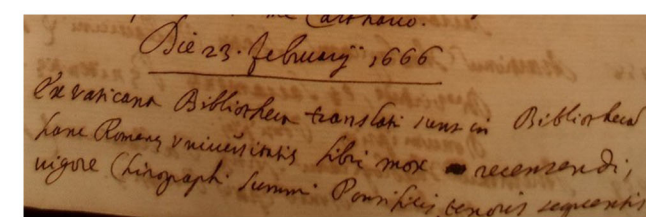 me Carthario.
Die 23. februarij 1666
Ex Vaticana Bibliotheca translati sunt in Bibliothecā
hanc Romanę vniuersitatis libri mox recensendi,
uigore Chirographi summi Pontificis tenoris sequentis